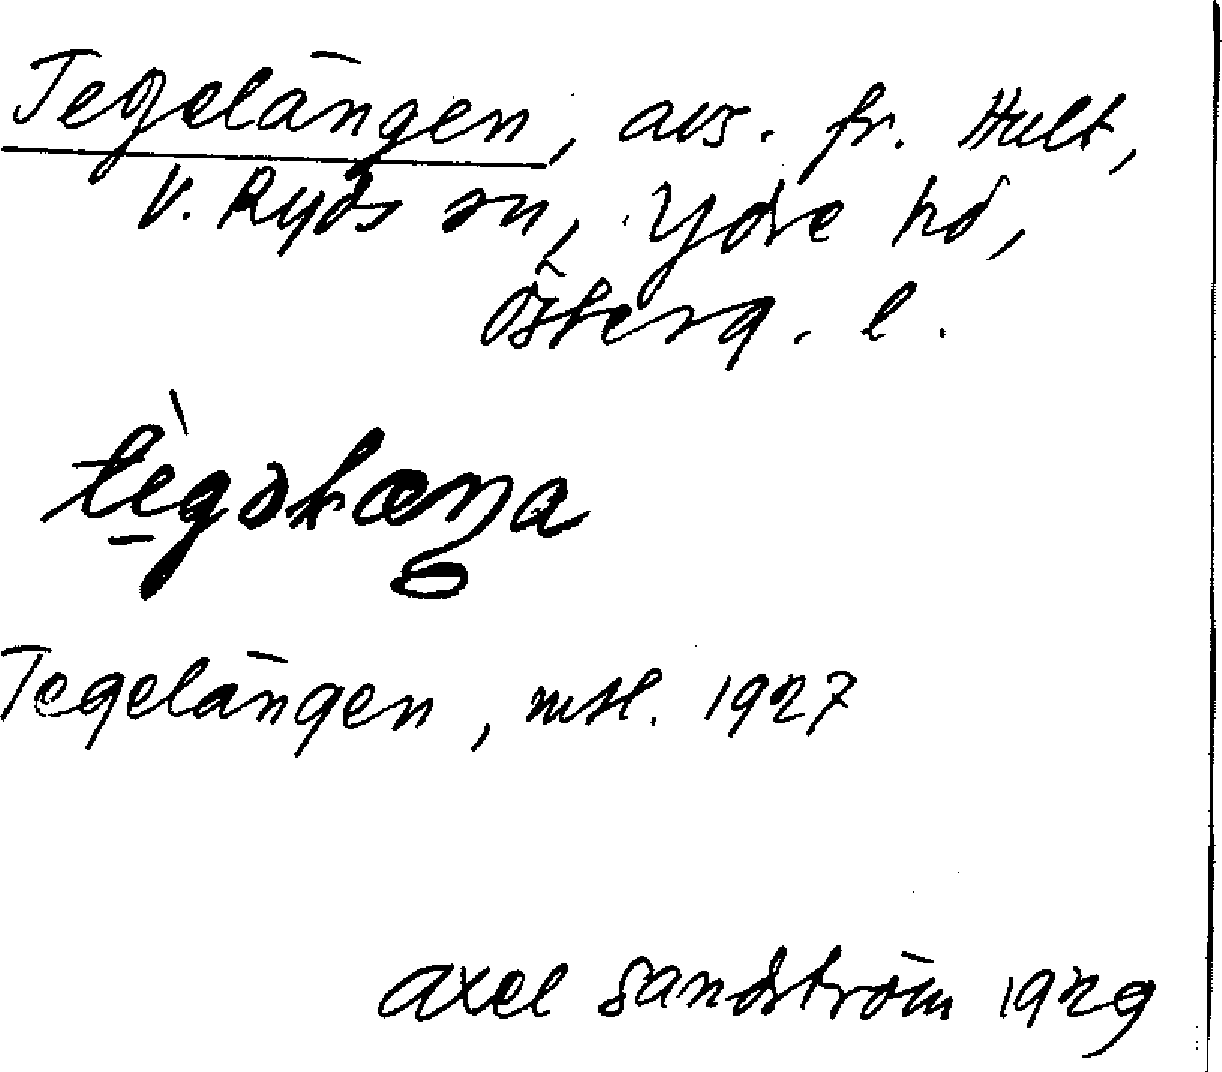 Tegelängen, avs. fr. Hult,
V. Ryds sn, Ydre hd,
Österg. l.
Tegelängen, mtl. 1927
Axel Sandström 1929